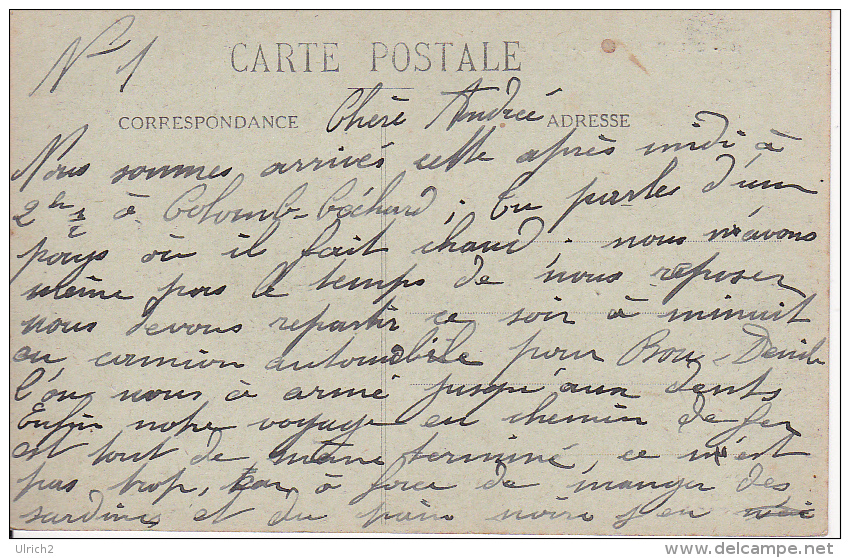 N° 1
CARTE POSTALE
CORRESPONDANCE
ADRESSE
Chère Andrée
Nous sommes arrivés cette après midi à
2h 1/2 à Colomb-Béchard, tu parles d'un
pays où il fait chaud. nous n'avons
même pas le temps de nous reposer
nous devons repartir ce soir à minuit
en camion automobile pour Bou-Denib
l'on nous à armé jusqu'aux dents
Enfin notre voyage en chemin de fer
est tout de même terminé, ce n'est
pas trop, car à force de manger des
sardines et du pain noire j'en
Ulrich2
http://www.delcampe.net